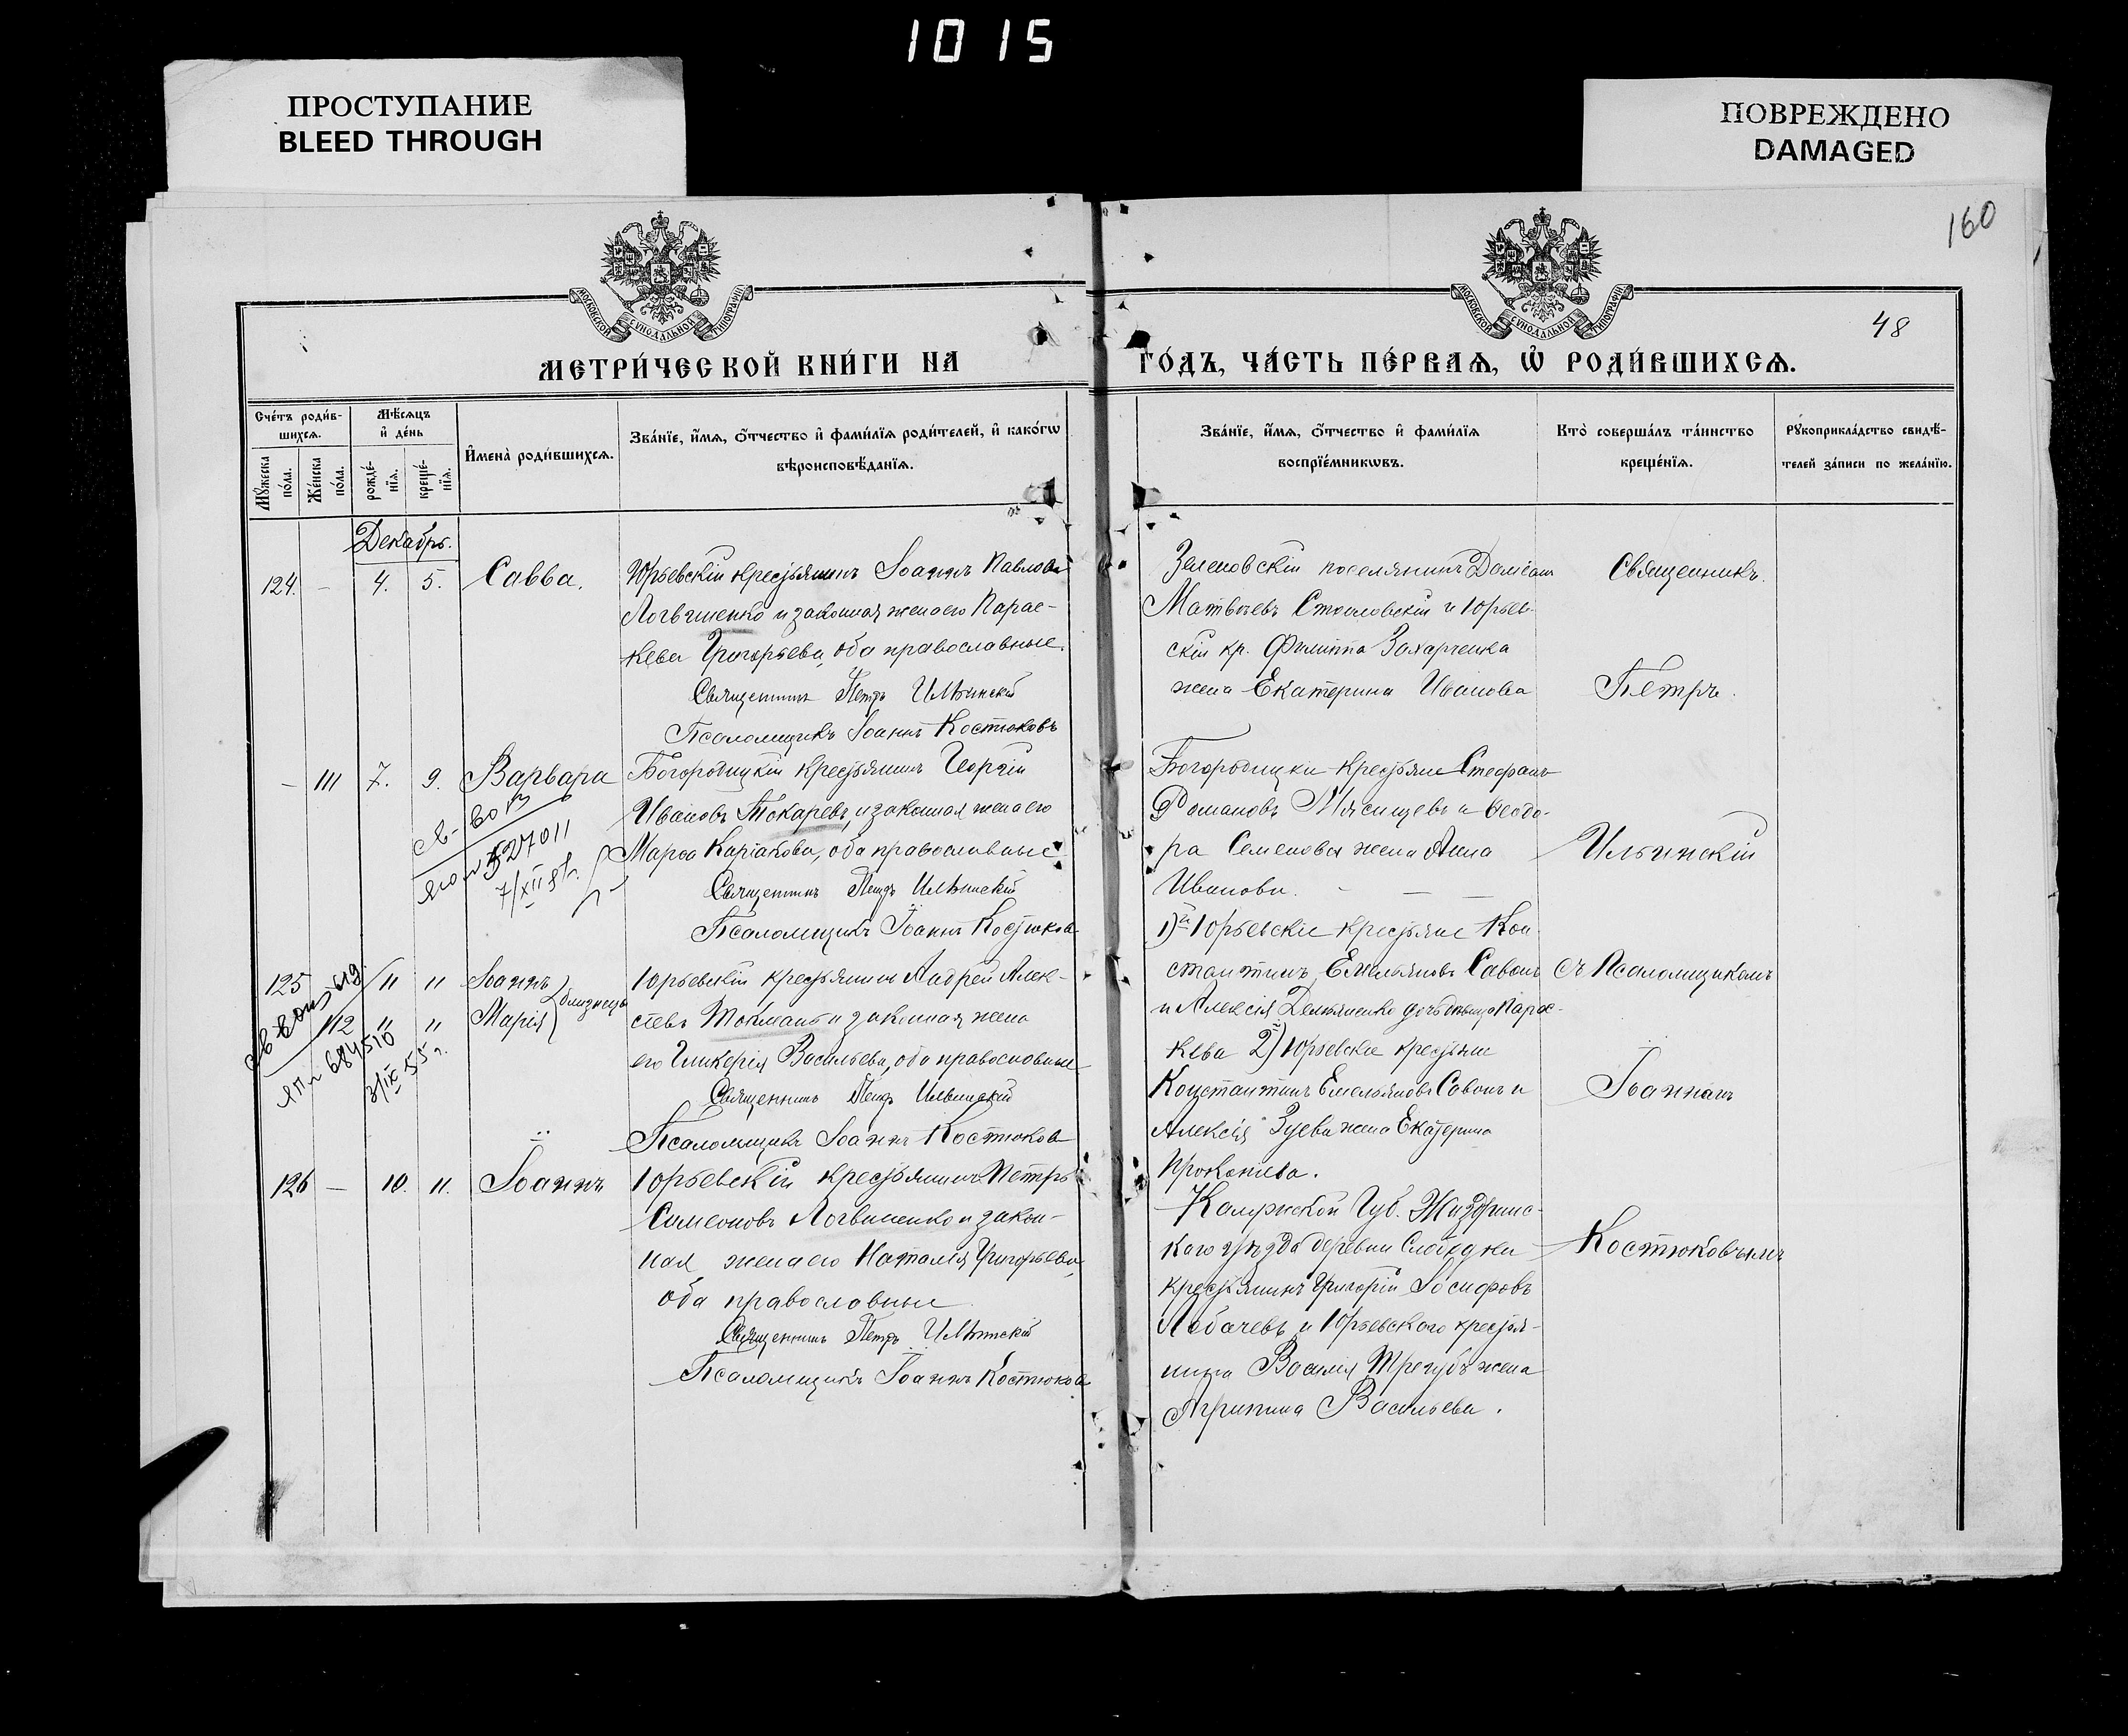 1015
ПРОСТУПАНИЕ
BLEED THROUGH
ПОВРЕЖДЕНО
DAMAGED
160
МОСКОВСКОЙ СѴНОДАЛЬНОЙ ТИПОГРАФІИ
МОСКОВСКОЙ СѴНОДАЛЬНОЙ ТИПОГРАФІИ
48
МЕТРИ́ЧЕСКОЙ КНИ́ГИ НА
ГО́ДЪ, ЧА́СТЬ ПЕ́РВАѦ, Ѡ҆ РОДИ́ВШИХСѦ.
Сче́тъ роди́в-
шихсѧ.
Мꙋ́жеска по́ла.
Же́нска по́ла.
Мѣ́сѧцъ
и҆ де́нь
рожде́-
нїѧ.
креще́-
нїѧ.
И҆мена̀ роди́вшихсѧ.
Зва́нїе, и҆́мѧ, ѻ҆́тчество и҆ фами́лїѧ роди́телей, и҆ како́гѡ
вѣроисповѣ́данїѧ.
Зва́нїе, и҆́мѧ, ѻ҆́тчество и҆ фами́лїѧ
воспрїе́мникѡвъ.
Кто̀ соверша́лъ та́инство
креще́нїѧ.
Рꙋкоприкла́дство свидѣ́-
телей за́писи по жела́нїю.
Декабрь.
124. – 4. 5. Савва.
Юрьевскій крестьянинъ Іоаннъ Павловъ
Логвиненко и законная жена его Парас-
кева Григорьева, оба православные.
Священникъ Петръ Ильинскій
Псаломщикъ Іоаннъ Костюковъ
Зеленовскій поселянинъ Даміанъ
Матвѣевъ и Юрьев-
скій кр. Филиппа Захарченка
жена Екатерина Иванова
Священникъ
Петръ
– 111 7. 9. Варвара
Богородицкій крестьянинъ Георгій
Ивановъ Токаревъ, и законная жена его
Марѳа оба православные
Священникъ Петръ Ильинскій
Псаломщикъ Іоаннъ Костюковъ
св-во
527011
7/XII
Богородицкіе крестьяне Стефанъ
Романовъ Мясищевъ и Ѳеодо-
ра Семенова жена Анна
Иванова.
Ильинскій
125 11 11 Іоаннъ
112 11 11 Марія
близнецы
684510
3/IX 55 г.
Юрьевскій крестьянинъ Андрей Алек-
сѣевъ Токмань и законная жена
его Гликерія Васильева, оба православные
Священникъ Петръ Ильинскій
Псаломщикъ Іоаннъ Костюковъ
1) Юрьевскіе крестьяне Кон-
стантинъ Емельяновъ Савонъ
и Алексія дочь дѣвица Парас-
кева 2) Юрьевскіе крестьяне
Константинъ Емельяновъ Савонъ и
Алексія Зуева жена Екатерина
Прокопіева.
съ Псаломщикомъ
Іоанномъ
126 – 10. 11. Іоаннъ
Юрьевскій крестьянинъ Петръ
Симеоновъ Логвиненко и закон-
ная жена его Наталія Григорьева,
оба православные
Священникъ Петръ Ильинскій
Псаломщикъ Іоаннъ Костюковъ
Калужской Губ. Жиздринс-
каго уѣзда деревни Слободки
крестьянинъ Григорій Іосифовъ
Лобачевъ и Юрьевскаго крестья-
нина Василія Трегубъ жена
Агрипина Васильева.
Костюковымъ